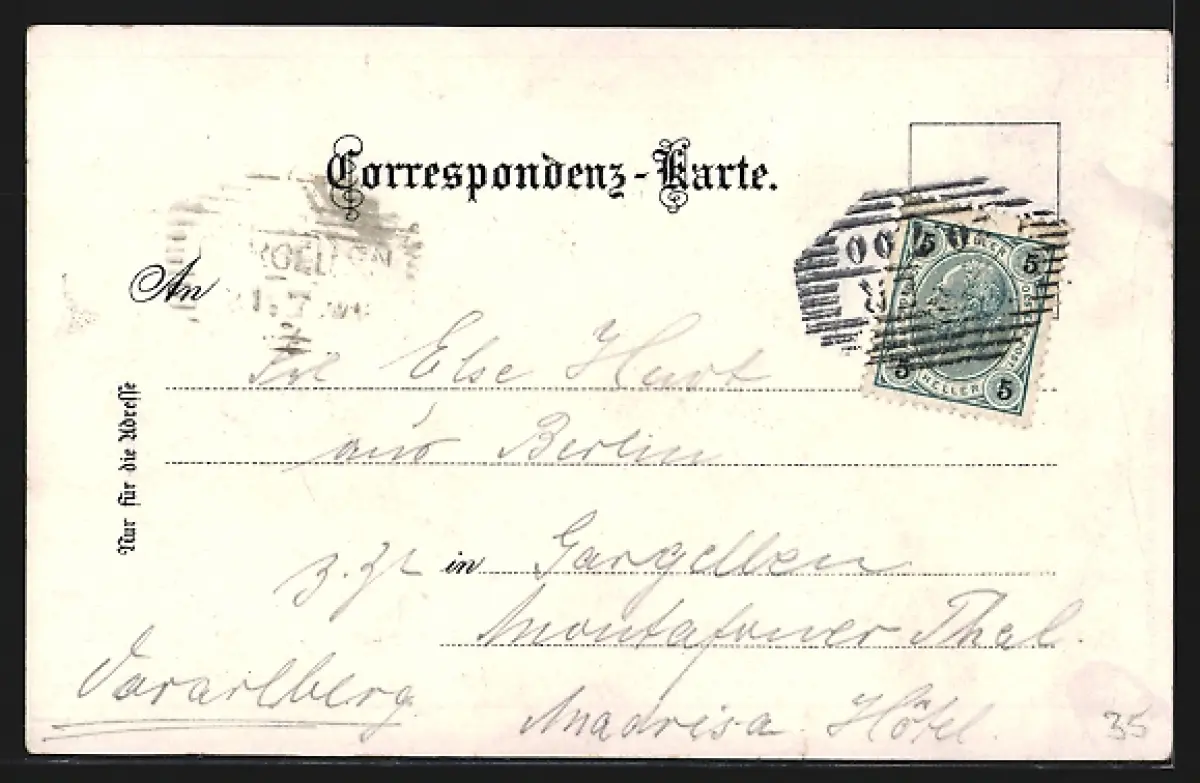 Correspondenz-Karte.
An
Nur für die Adresse
5 5
5 HELLER 5
Frl Else Hurt
aus Berlin
z. Zt. in Gargellen
Montafoner Thal.
Vorarlberg
Madrisa Hôtel.
35